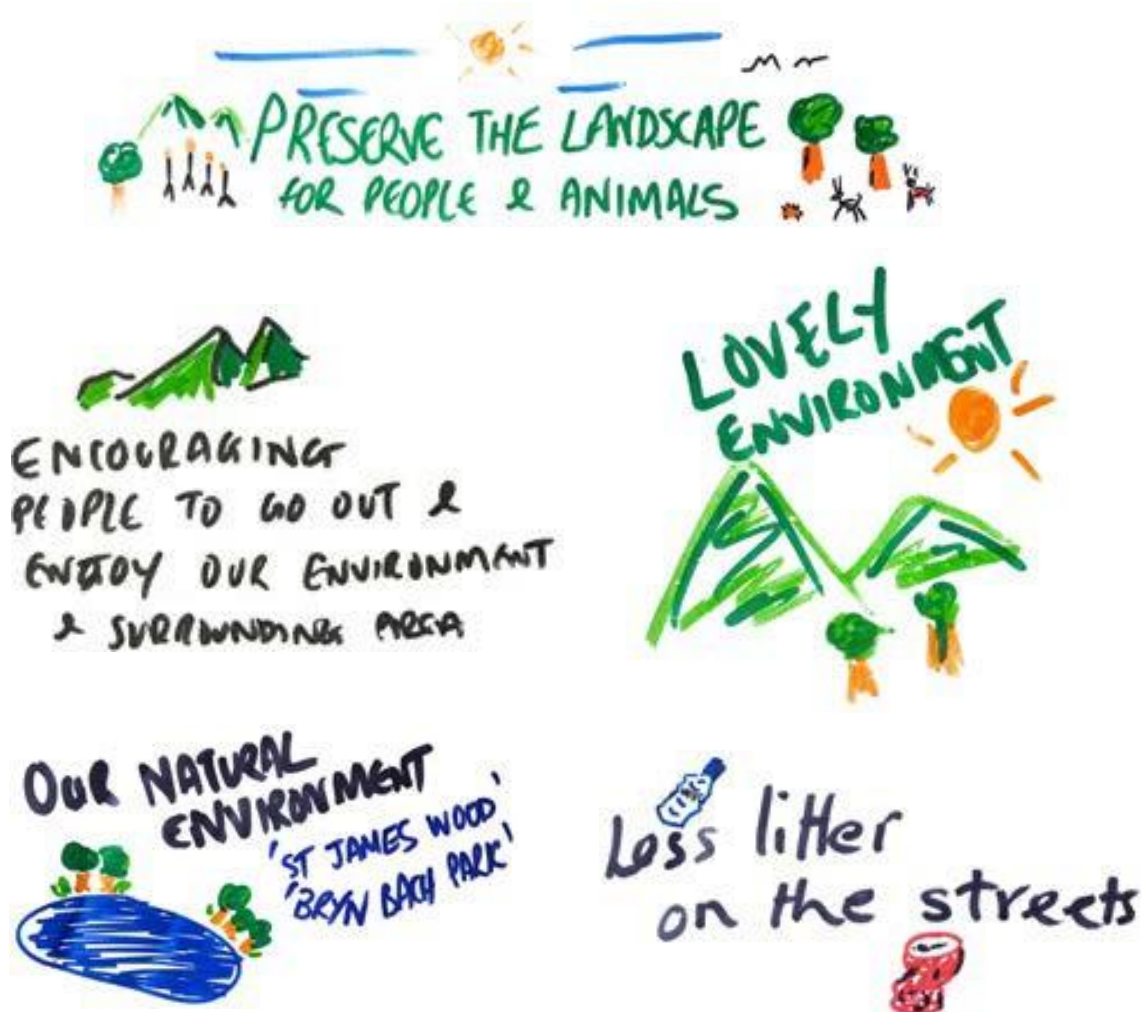 PRESERVE THE LANDSCAPE
FOR PEOPLE & ANIMALS
LOVELY
ENVIRONMENT
ENCOURAGING
PEOPLE TO GO OUT &
ENJOY OUR ENVIRONMENT
& SURROUNDING AREA
OUR NATURAL
ENVIRONMENT
'ST JAMES WOOD'
'BRYN BACH PARK'
Less litter
on the streets